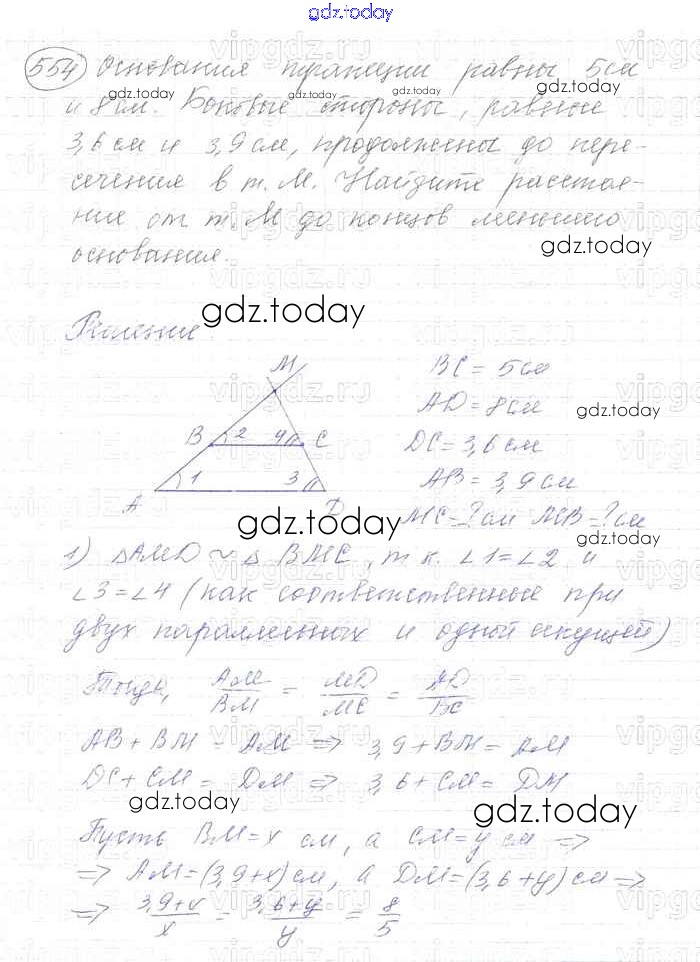 gdz.today
554 Основания трапеции равны 5см
и 8см. Боковые стороны, равные
3,6см и 3,9см, продолжены до пере-
сечения в т. М. Найдите расстоя-
ние от т. М до концов меньшего
основания.
gdz.today
Решение
M
B 2 4 C
A 1 3 D
BC = 5см
AD = 8см
DC = 3,6см
AB = 3,9см
MC = ? см MB = ? см
gdz.today
1) △AMD ~ △BMC, т.к. ∠1=∠2 и
∠3=∠4 (как соответственные при
двух параллельных и одной секущей)
Тогда, AM/BM = MD/MC = AD/BC
AB + BM = AM => 3,9 + BM = AM
DC + CM = DM => 3,6 + CM = DM
gdz.today
Пусть BM = x см, а CM = y см =>
=> AM = (3,9+x) см, а DM = (3,6+y) см =>
=> 3,9+x/x = 3,6+y/y = 8/5